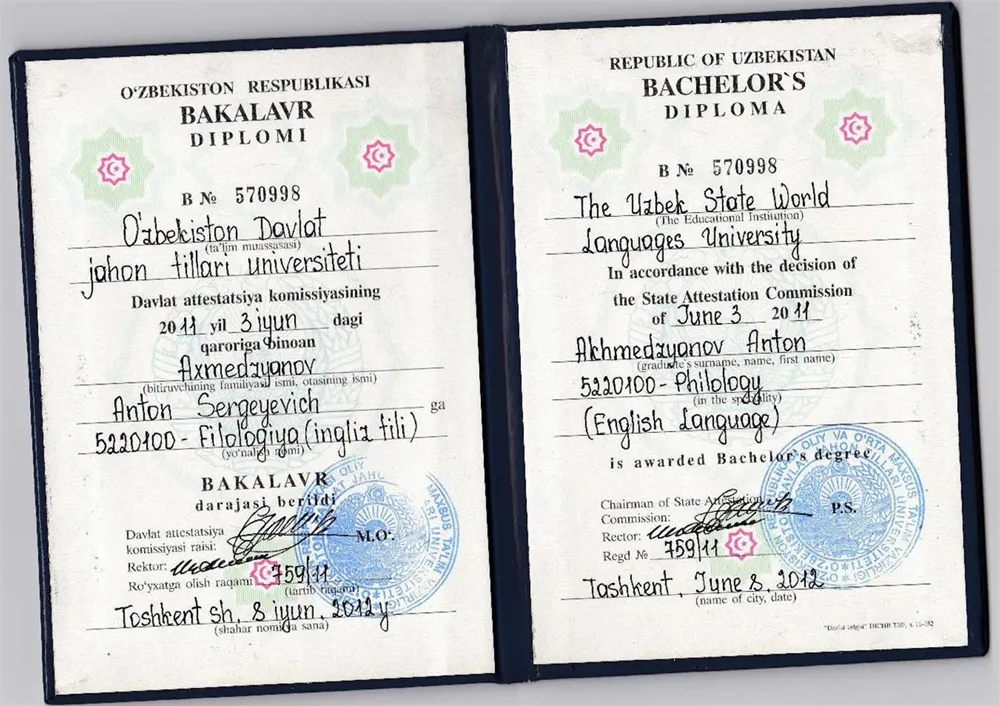 O‘ZBEKISTON RESPUBLIKASI
BAKALAVR
DIPLOMI
B № 570998
O'zbekiston Davlat
(ta'lim muassasasi)
jahon tillari universiteti
Davlat attestatsiya komissiyasining
2011 yil 3 iyun dagi
qaroriga binoan
Axmedzyanov
(bitiruvchining familiyasi ismi, otasining ismi)
Anton Sergeyevich ga
5220100 - Filologiya (ingliz tili)
(yo'nalish nomi)
BAKALAVR
darajasi berildi
Davlat attestatsiya
komissiyasi raisi:
M.O‘.
Rektor:
Ro'yxatga olish raqami 759/11
(tartib raqami)
Toshkent sh, 8 iyun, 2012 y
(shahar nomi va sana)
REPUBLIC OF UZBEKISTAN
BACHELOR`S
DIPLOMA
B № 570998
The Uzbek State World
(The Educational Institution)
Languages University
In accordance with the decision of
the State Attestation Commission
of June 3 2011
Akhmedzyanov Anton
(graduate's surname, name, first name)
5220100 - Philology
(in the speciality)
(English Language)
is awarded Bachelor's degree
Chairman of State Attestation
Commission:
P.S.
Rector:
Regd № 759/11
Tashkent, June 8, 2012
(name of city, date)